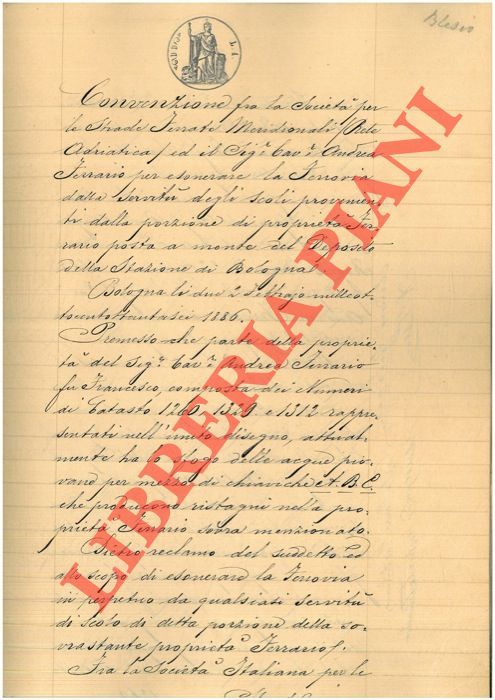 Blesio
Convenzione fra la Società per
le Strade Ferrate Meridionali (Rete
Adriatica) ed il Sigr Cavr Andrea
Ferrario per esonerare la Ferrovia
dalla Servitù degli Scoli provenien-
ti dalla porzione di proprietà Fer-
rario posta a monte del Deposito
della Stazione di Bologna.
Bologna li due 2 Febbrajo milleot-
tocentottantasei 1886.
Premesso che parte della proprie-
tà del Sigr Cavr Andrea Ferrario
fu Francesco, composta dei Numeri
di Catasto 1260. 1329. e 1312 rappre-
sentati nell'unito disegno, attual-
mente ha lo sfogo delle acque pio-
vane per mezzo di chiaviche A. B. C.
che producono ristagni nella pro-
prietà Ferrario sovra menzionato.
Dietro reclamo del suddetto ed
allo scopo di esonerare la Ferrovia
in perpetuo da qualsiasi servitù
di scolo di detta porzione della so-
vrastante proprietà Ferrario.
Fra la Società Italiana per le
LIBRERIA PIANI